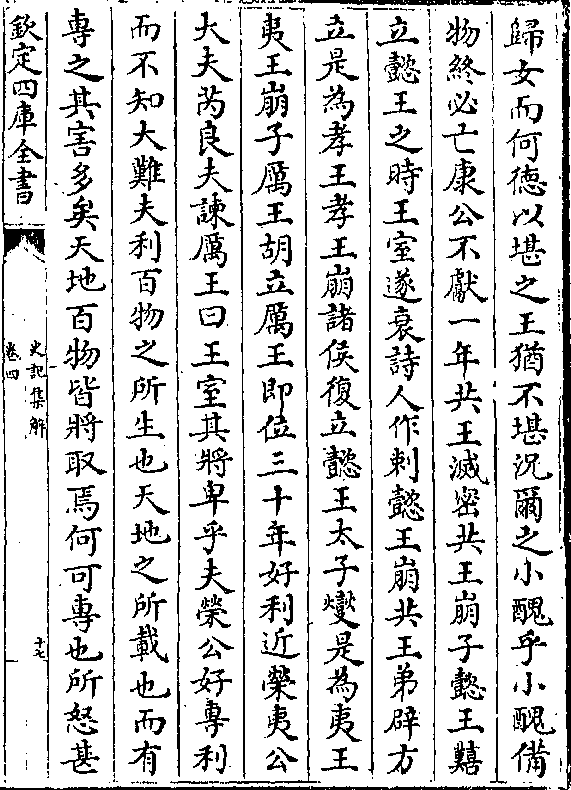 歸女而何德以堪之王猶不堪況爾之小醜乎小醜備
物終必亡康公不獻一年共王滅密共王崩子懿王囏
立懿王之時王室遂衰詩人作刺懿王崩共王弟辟方
立是為孝王孝王崩諸侯復立懿王太子燮是為夷王
夷王崩子厲王胡立厲王即位三十年好利近榮夷公
大夫芮良夫諫厲王曰王室其將卑乎夫榮公好專利
而不知大難夫利百物之所生也天地之所載也而有
專之其害多矣天地百物皆將取焉何可專也所怒甚
欽定四庫全書
史記集解
卷四
十七